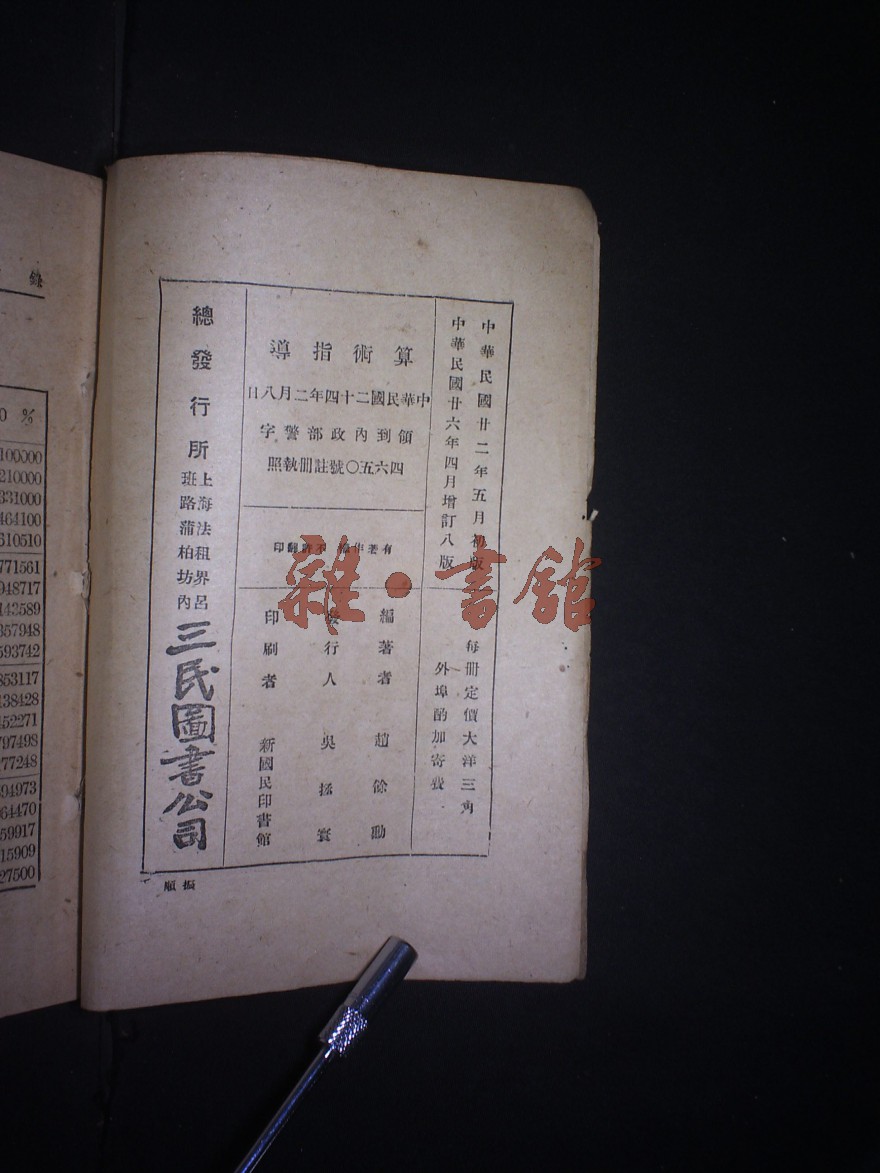 中華民國廿二年五月初版
中華民國廿六年四月增訂八版
每冊定價大洋三角
外埠酌加寄費
算術指導
中華民國二十四年二月八日
領到內政部警字
四六五〇號註冊執照
有著作權 不許翻印
編著者 趙餘勳
發行人 吳拯寰
印刷者 新國民印書館
總發行所
上海法租界呂
班路蒲柏坊內
三民圖書公司
振順
雜·書館
錄
0 %
100000
210000
331000
464100
610510
771561
948717
143589
357948
593742
853117
138428
452271
797498
77248
94973
64470
59917
15909
27500